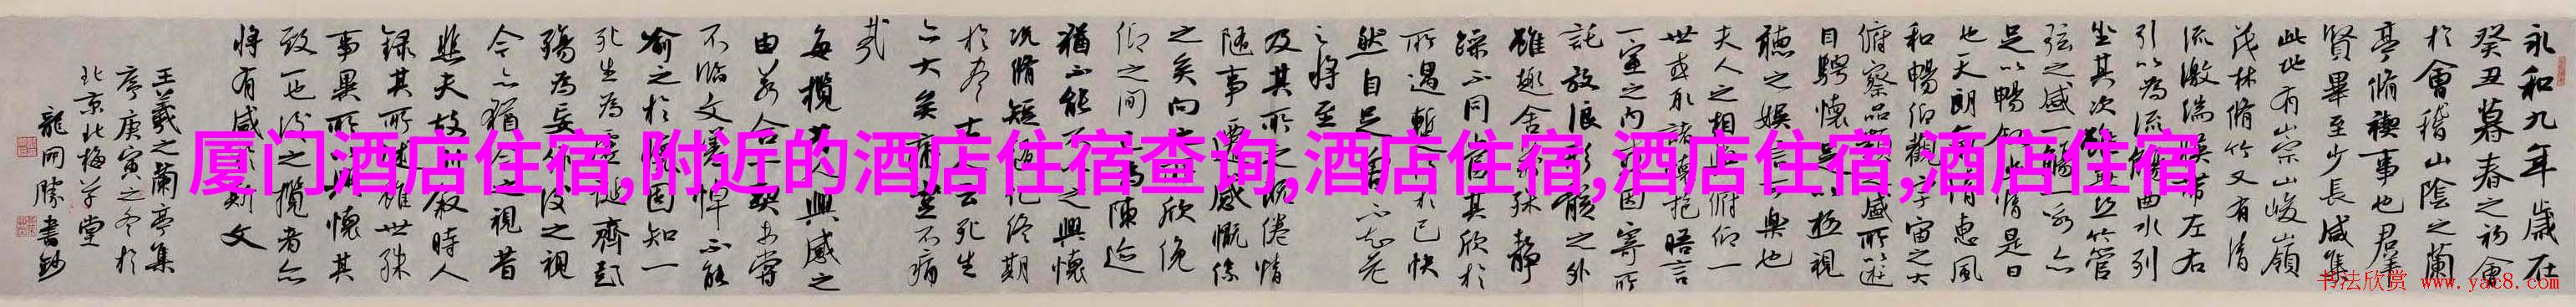 永和九年歲在
癸丑暮春之初會
於會稽山陰之蘭
亭脩禊事也群
賢畢至少長咸集
此地有崇山峻嶺
茂林脩竹又有清
流激湍映帶左右
引以為流觴曲水列
坐其次雖無絲竹管
弦之盛一觴一詠亦
足以暢敘幽情是日
也天朗氣清惠風
和暢仰觀宇宙之大
俯察品類之盛所以遊
目騁懷足以極視
聽之娛信可樂也
夫人之相與俯仰一
世或取諸懷抱晤言
一室之內或因寄所
託放浪形骸之外
雖趣舍萬殊靜
躁不同當其欣於
所遇暫得於己快
然自足曾不知老
之將至
及其所之既倦情
隨事遷感慨係
之矣向之所欣俛
仰之間以為陳迹
猶不能不以之興懷
況脩短隨化終期
於盡古人云死生
亦大矣豈不痛
哉
每攬昔人興感之
由若合一契未嘗
不臨文嗟悼不能
喻之於懷固知一
死生為虛誕齊彭
殤為妄作後之視
今亦猶今之視昔
悲夫故列敘時人
錄其所述雖世殊
事異所以興懷其
致一也後之攬者亦
將有感於斯文
王羲之蘭亭集
序庚寅之冬於
北京北梅草堂
龍開勝書鈔
厦门酒店住宿,附近的酒店住宿查询,酒店住宿,酒店住宿,酒店住宿
书法欣赏 www.yac8.com